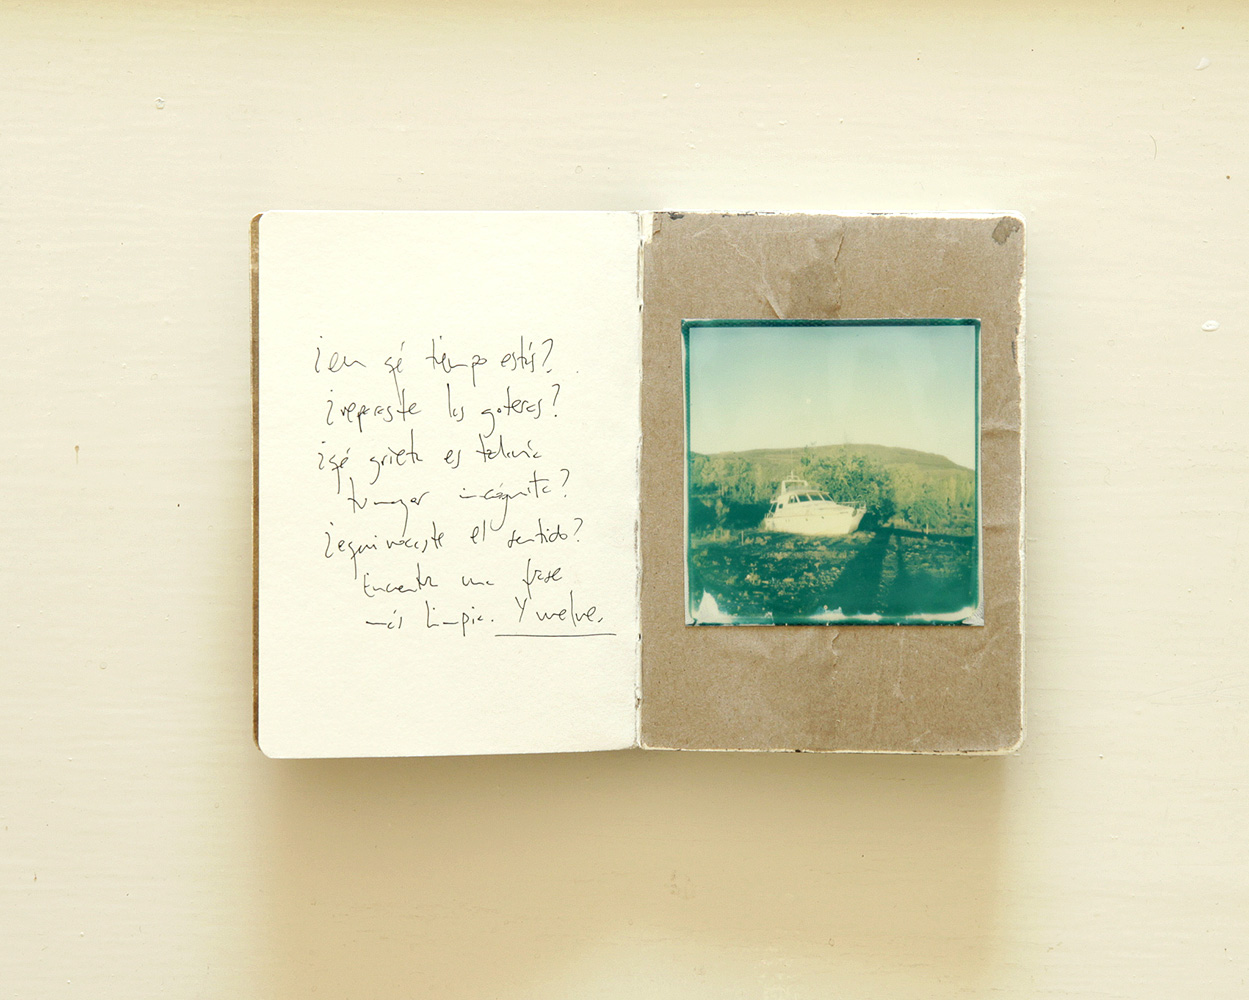 ¿en qé tiempo estás?
¿reparaste las goteras?
¿qé grieta es todavía
tu mayor incógnita?
¿equivocaste el sentido?
Encuentra una frase
más limpia. Y vuelve.